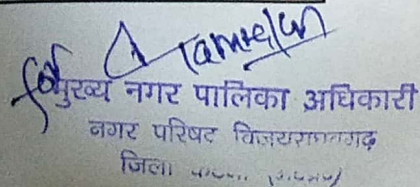 मुख्य नगर पालिका अधिकारी
नगर परिषद विजयराघवगढ़
जिला